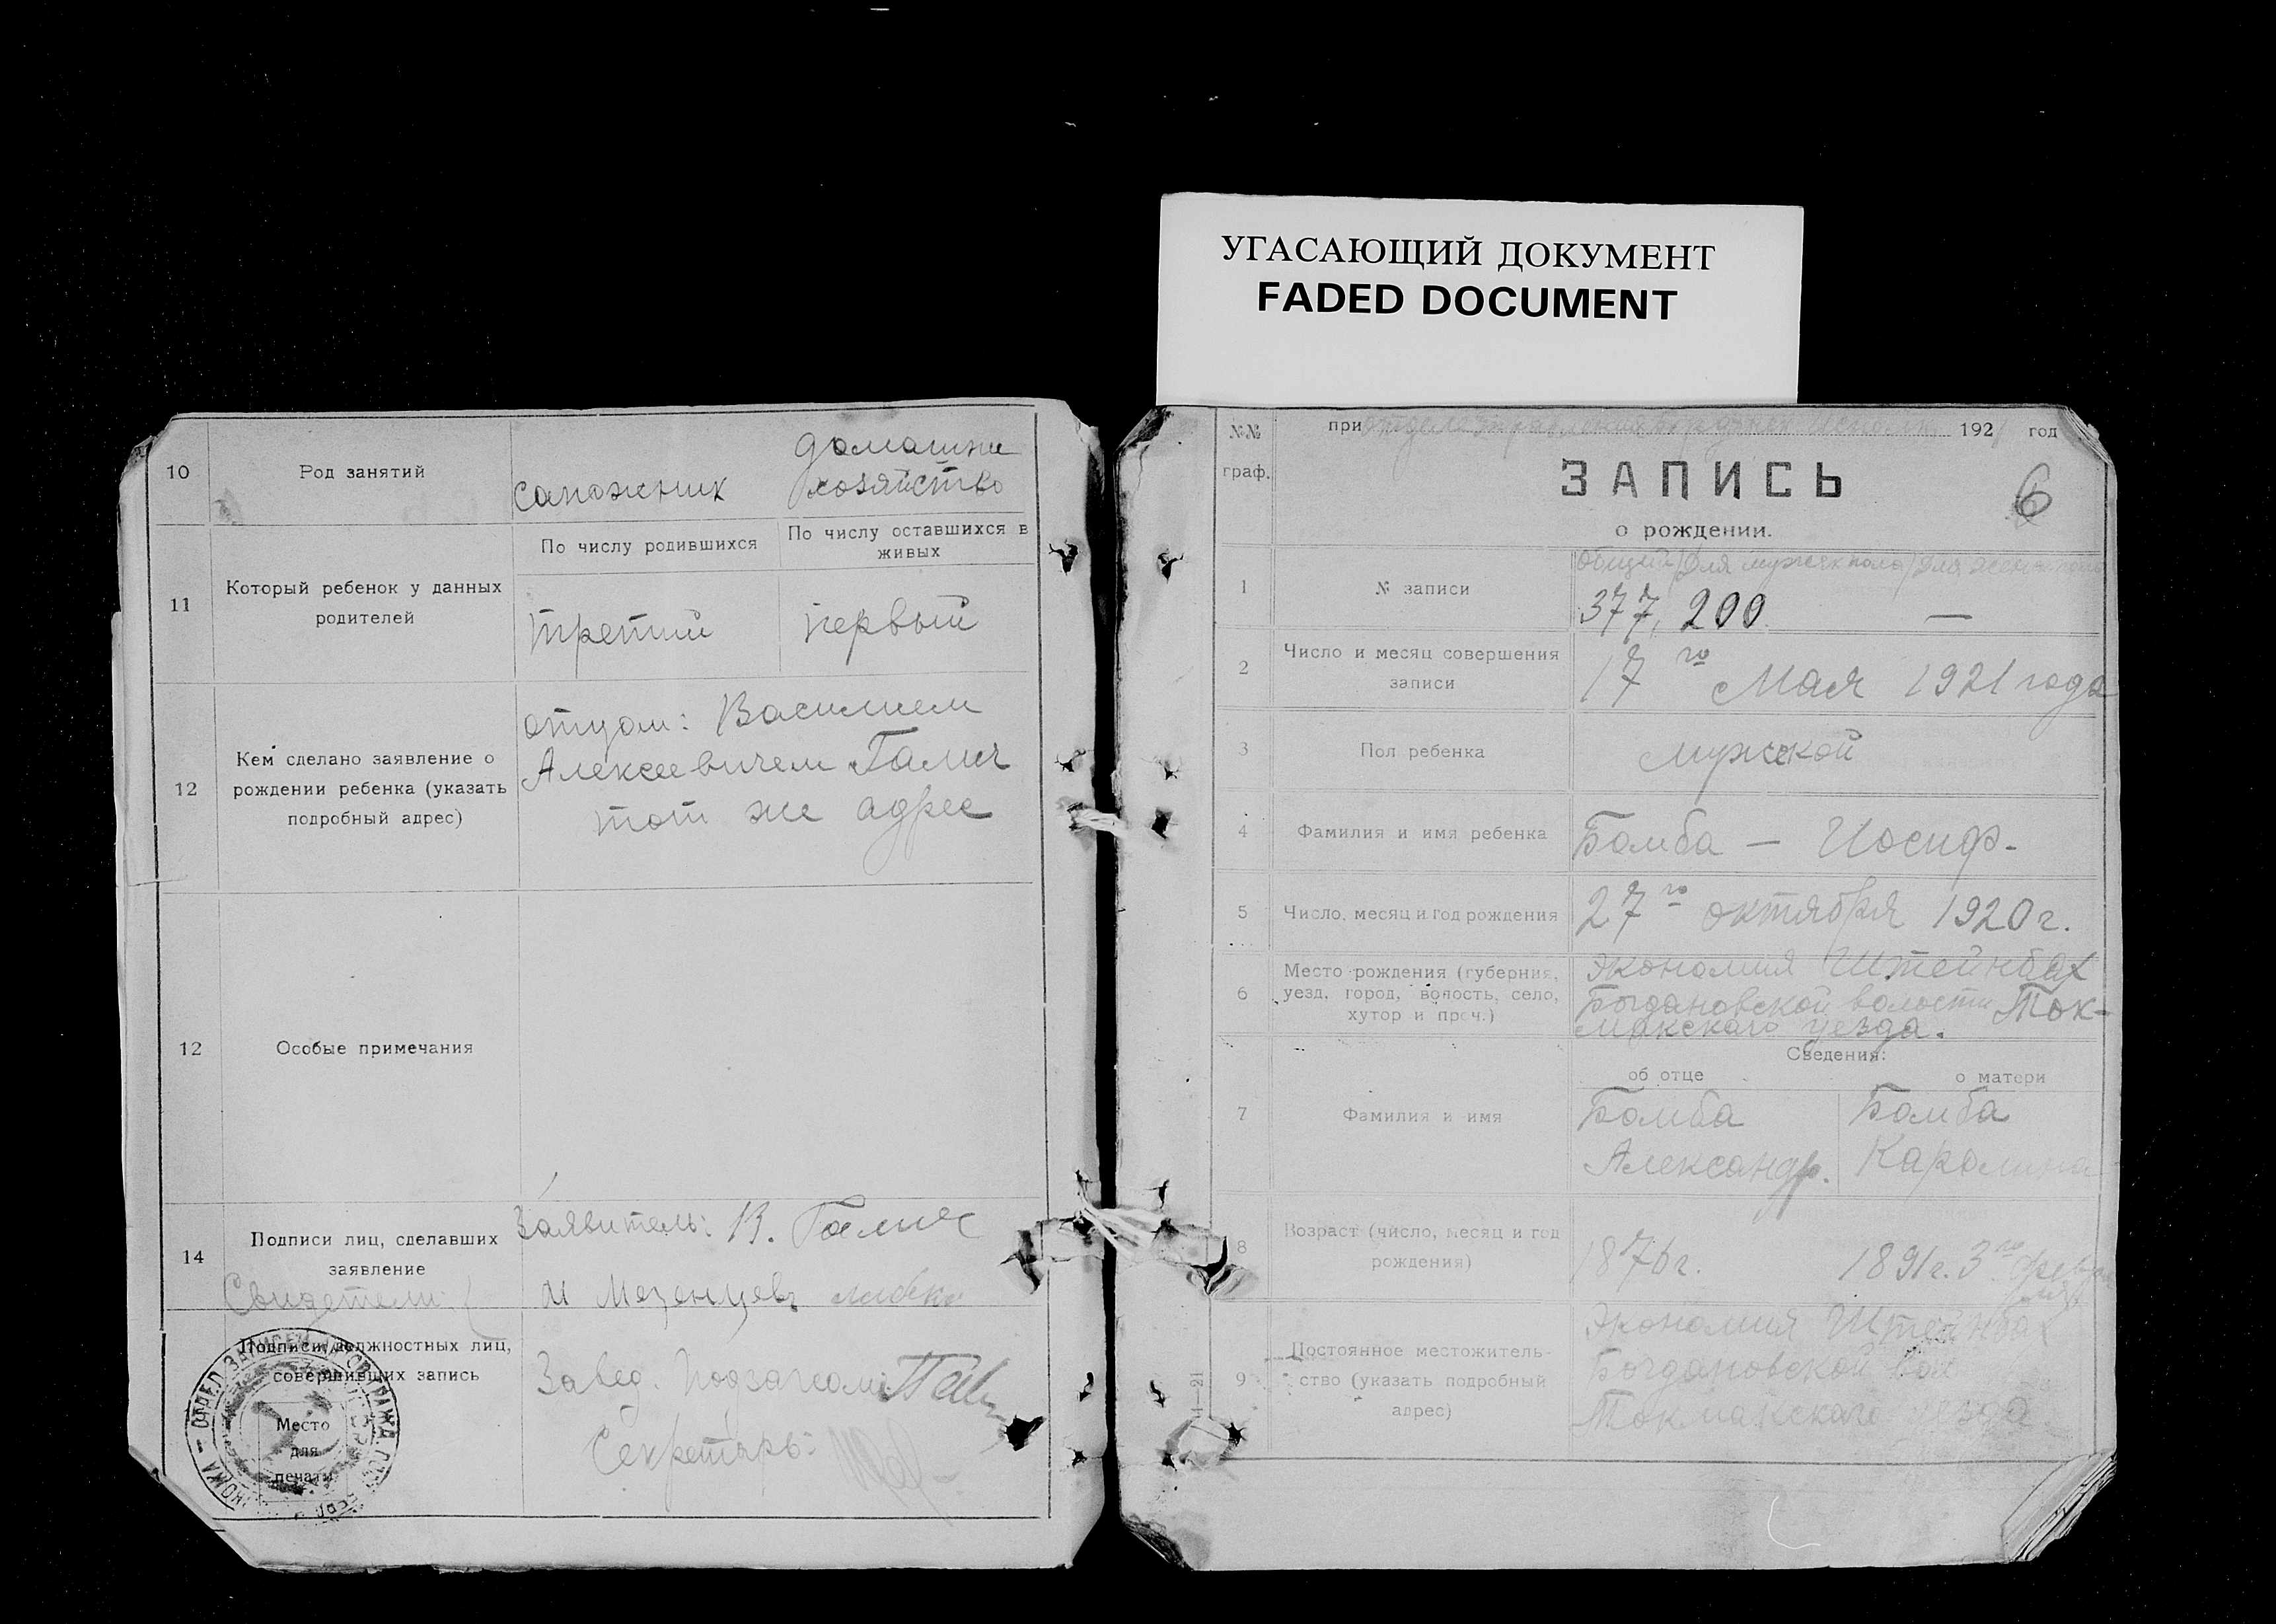 УГАСАЮЩИЙ ДОКУМЕНТ
FADED DOCUMENT
10 Род занятий сапожник домашне
хозяйство
По числу родившихся По числу оставшихся в
живых
11 Который ребенок у данных
родителей
третий первый
12 Кем сделано заявление о
рождении ребенка (указать
подробный адрес)
отцом: Василием
Алексеевичем Галич
тот же адрес
12 Особые примечания
14 Подписи лиц, сделавших
заявление
Заявитель: В.
Свидетели: Мезенцевъ
Подписи должностных лиц,
совершивших запись
Место
для
печати
Завед. Подзагсом
Секретарь:
№№
граф.
при 192 год
ЗАПИСЬ
6
о рождении.
1 № записи
Общий Для мужск пола Для
377, 200 —
2 Число и месяц совершения
записи
17го Мая 1921 года
3 Пол ребенка мужской
4 Фамилия и имя ребенка Бомба — Иосиф.
5 Число, месяц и год рождения 27го октября 1920 г.
6 Место рождения (губерния,
уезд, город, волость, село,
хутор и проч.)
экономия Штейнбах
Богдановской волости Ток-
макского уезда.
Сведения:
об отце о матери
7 Фамилия и имя
Бомба Бомба
Александр. Каролина
8 Возраст (число, месяц и год
рождения)
1876 г. 1891 г. 3го февра
ля
9 Постоянное местожитель-
ство (указать подробный
адрес)
Экономия Штейнбах
Богдановской вол
Токмакскаго уезда.